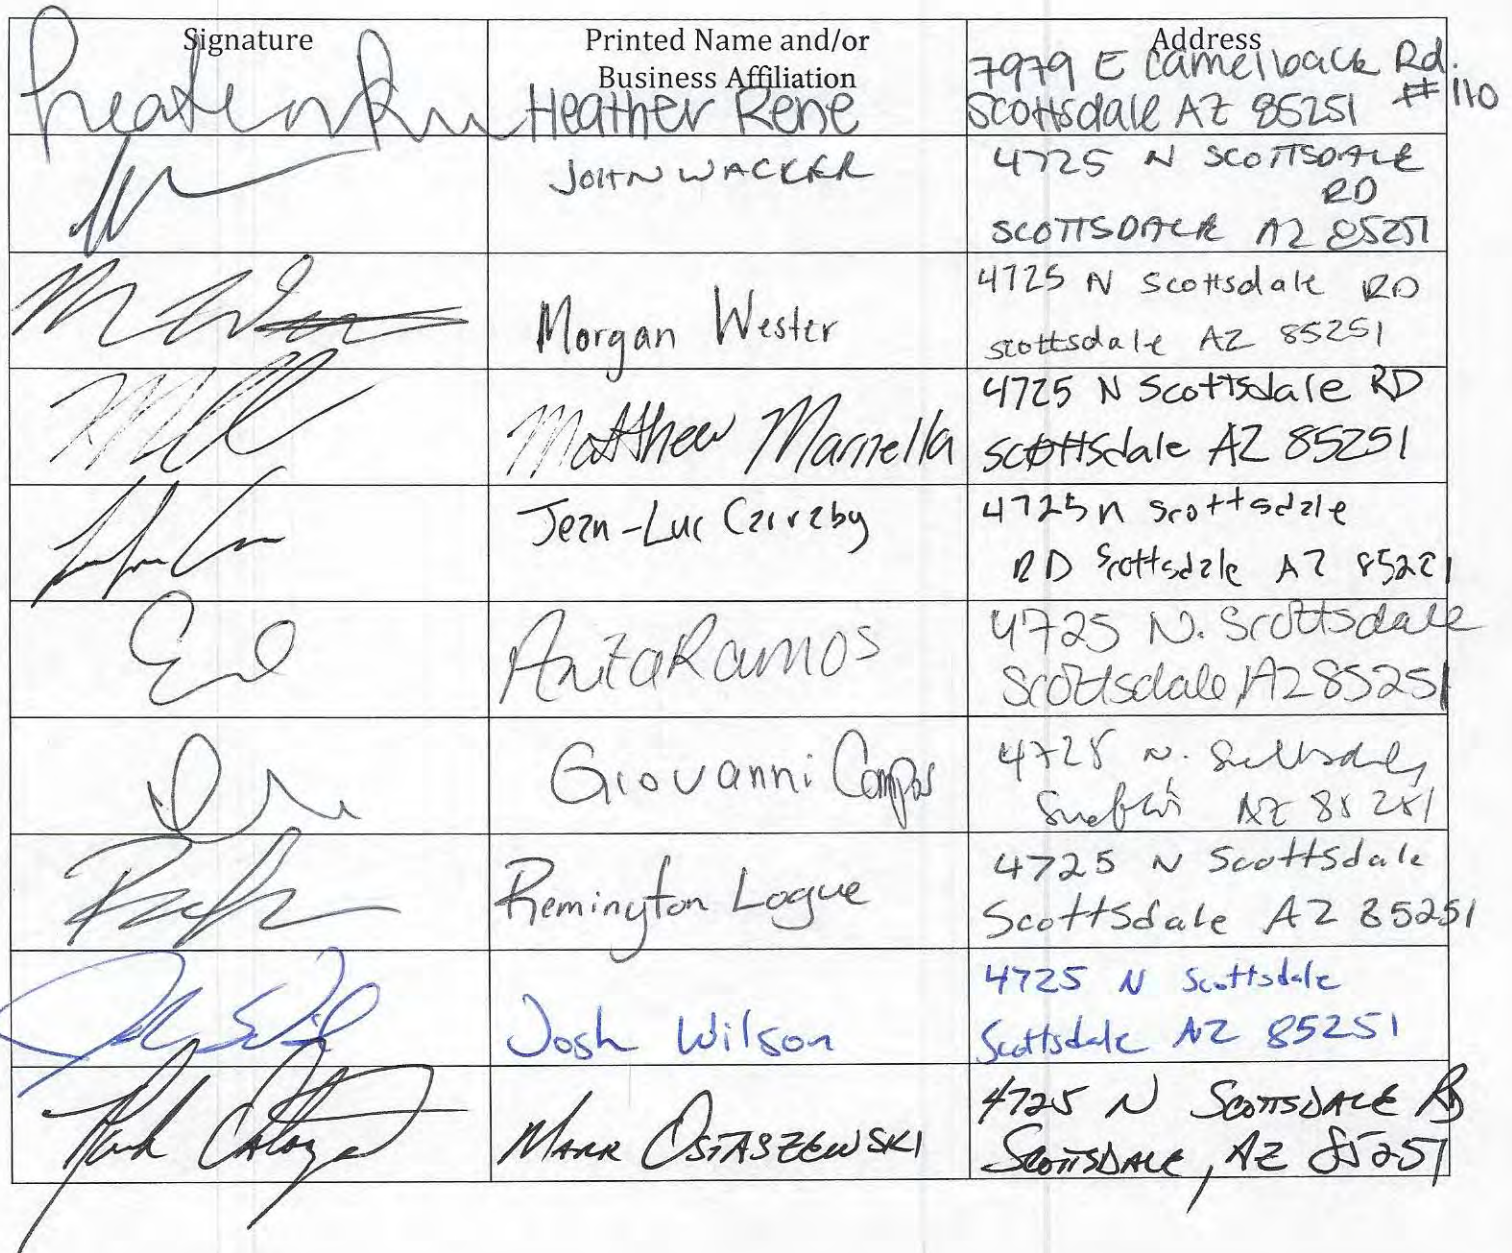 Signature
Printed Name and/or
Business Affiliation
Address
Heather Rene
7979 E Camelback Rd.
#110
Scottsdale AZ 85251
JOHN WACKER
4725 N SCOTTSDALE
RD
SCOTTSDALE AZ 85251
Morgan Wester
4725 N Scottsdale RD
scottsdale AZ 85251
Matthew Marzella
4725 N Scottsdale RD
scottsdale AZ 85251
Jean-Luc
4725 n scottsdale
RD Scottsdale AZ
Anita Ramos
4725 N. Scottsdale
Scottsdale, AZ 85251
Giovanni Campos
4725 N.
AZ 85251
Remington Logue
4725 N Scottsdale
Scottsdale AZ 85251
Josh Wilson
4725 N Scottsdale
Scottsdale AZ 85251
MARK OSTASZEWSKI
4725 N SCOTTSDALE RD
SCOTTSDALE, AZ 85251